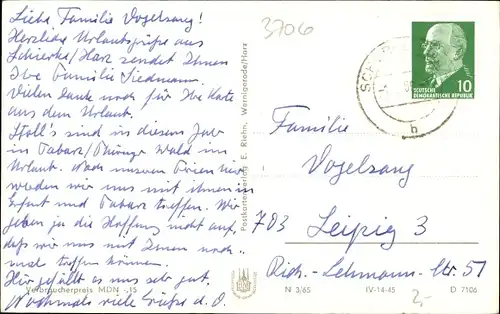 Liebe Familie Vogelsang!
Herzliche Urlaubsgrüße aus
Schierke/Harz sendet Ihnen
Ihre Familie Siedmann.
Vielen Dank noch für Ihre Karte
aus dem Urlaub.
Stoll's sind in diesem Jahr
in Tabarz/Thüringer Wald im
Urlaub. Nach unseren Ferien hier
werden wir uns mit ihnen in
Erfurt und Tabarz treffen. Wir
geben ja die Hoffnung nicht auf,
daß wir uns mit Ihnen noch-
mal treffen können.
Hier gefällt es uns sehr gut.
Nochmals viele Grüße d. O.
Verbraucherpreis MDN -,15
Postkartenverlag E. Riehn, Wernigerode/Harz
3706
DEUTSCHE
DEMOKRATISCHE REPUBLIK
10
b
Familie
Vogelsang
703 Leipzig 3
Rich.-Lehmann-Str. 51
N 3/65 IV-14-45 D 7106
2,-